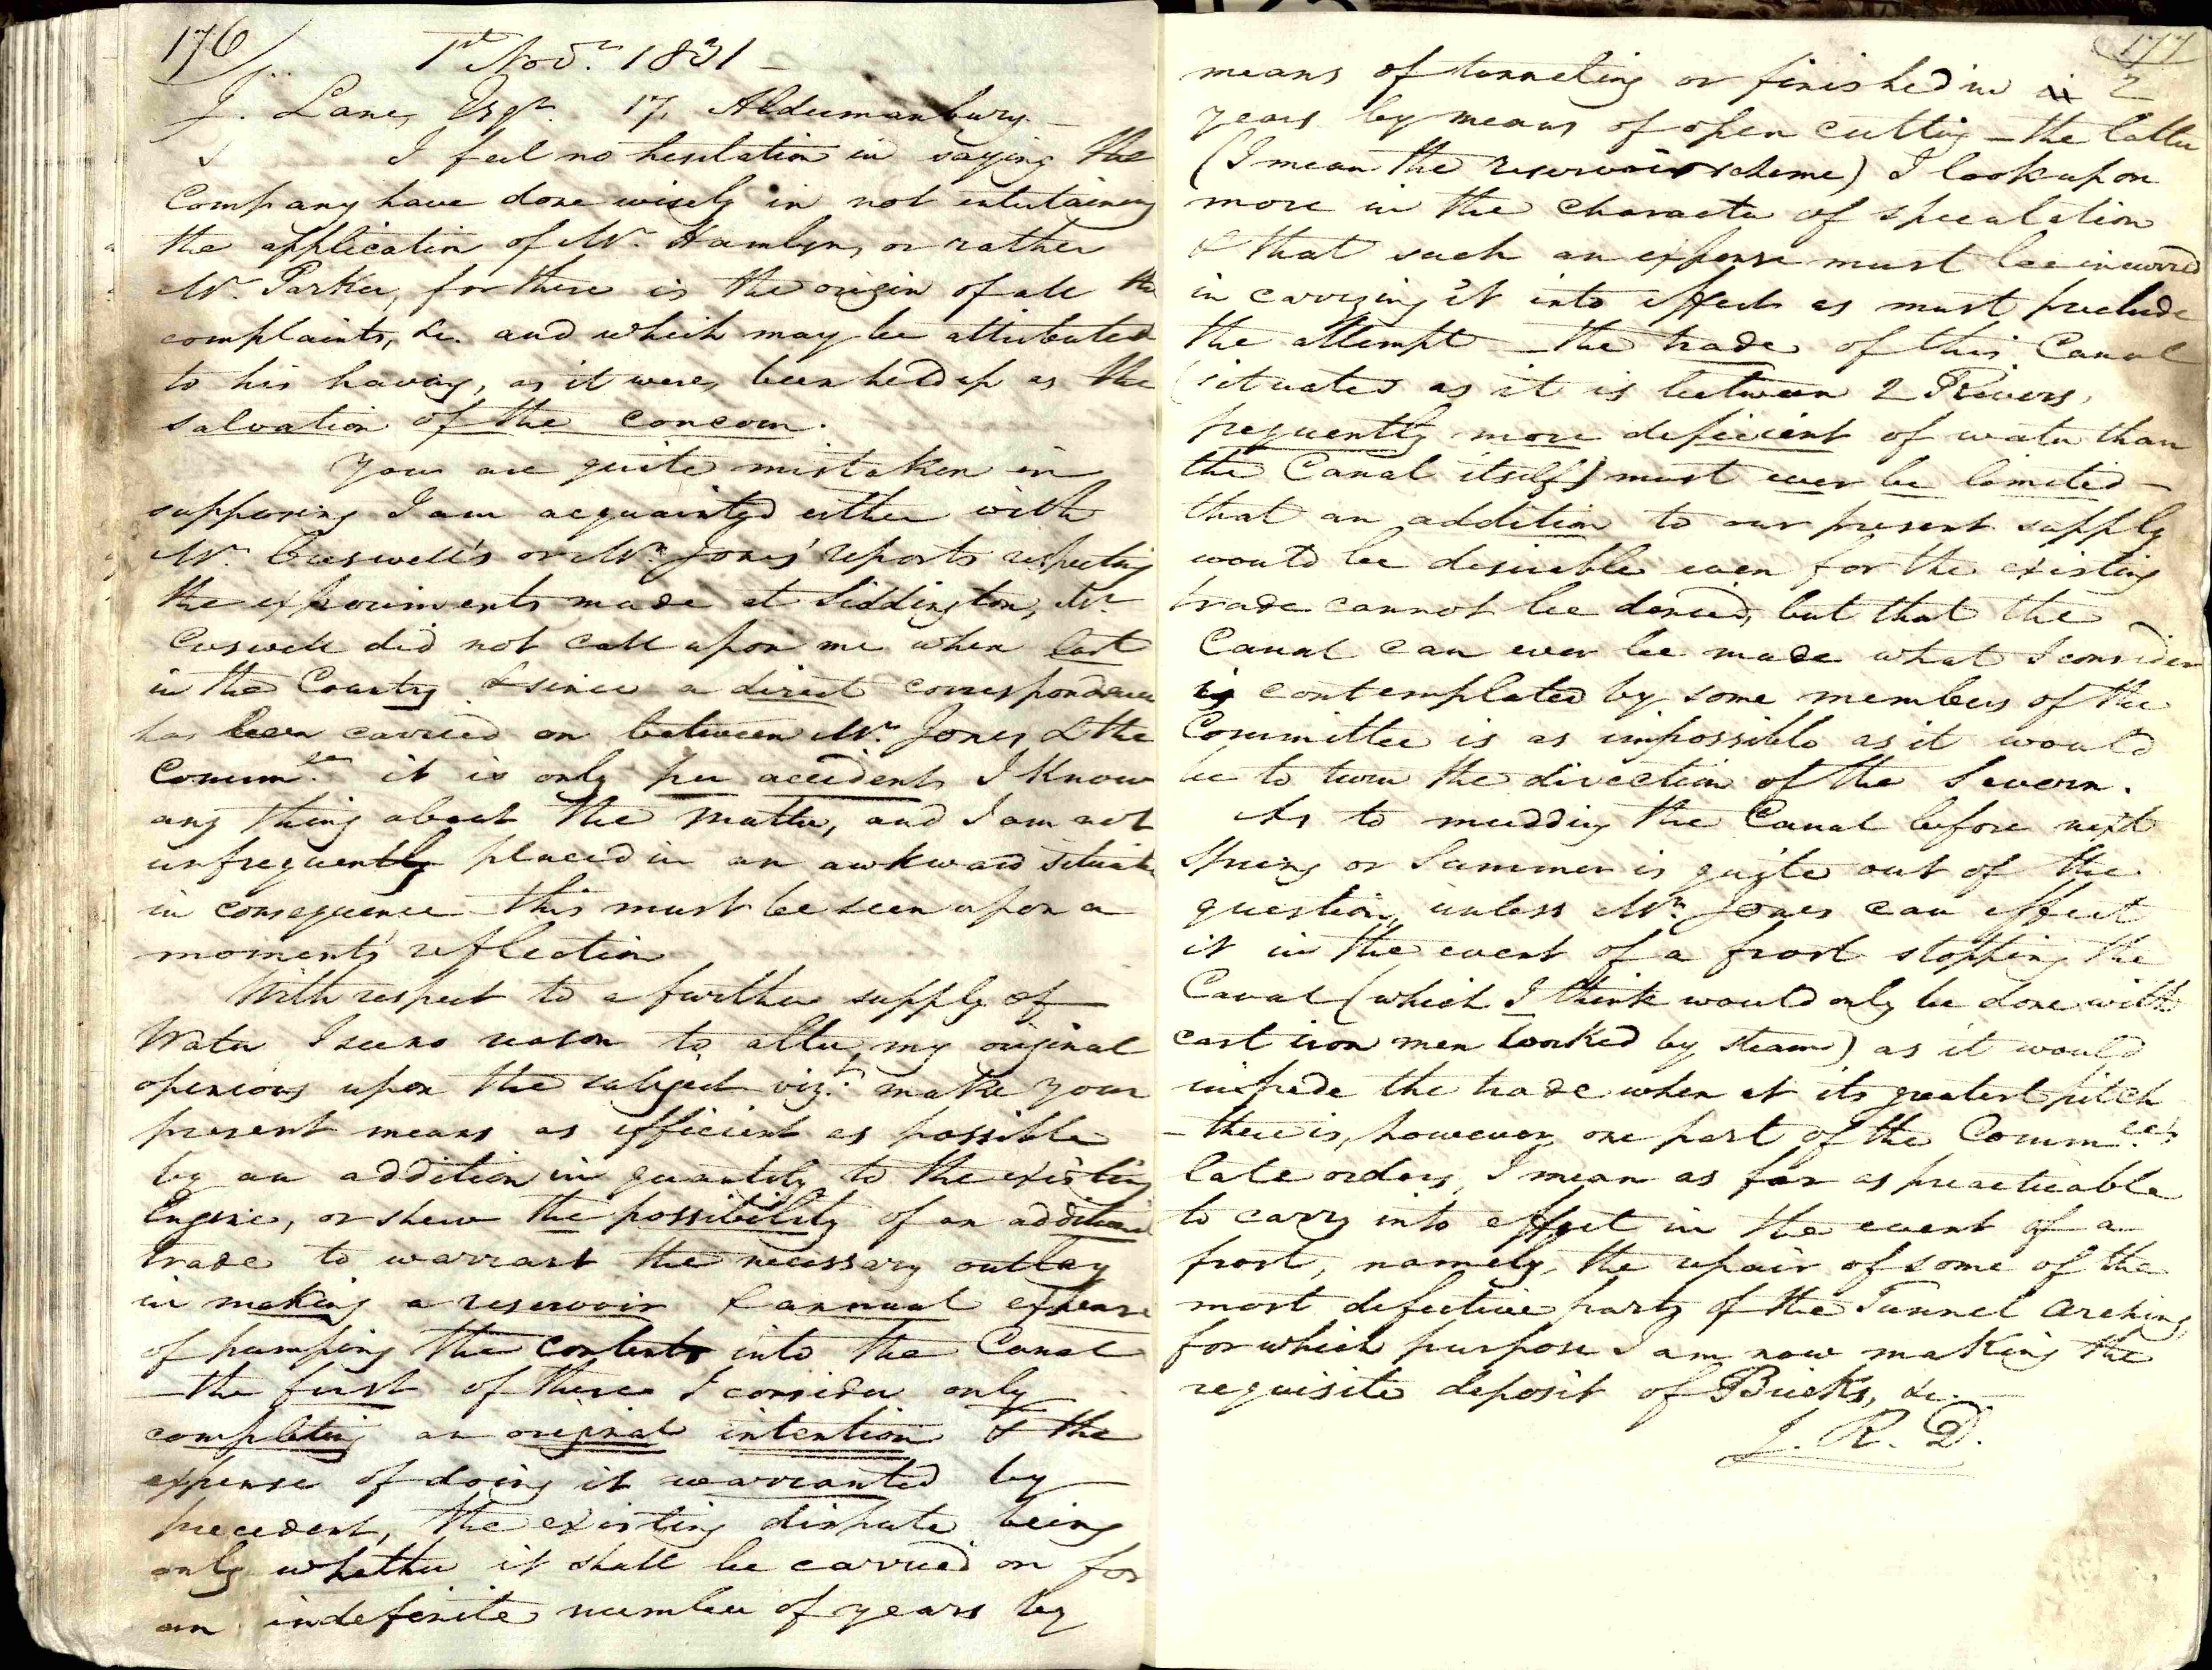 176
1st Novr. 1831 -
J. Lane, Esqr. 17, Aldermanbury -
I feel no hesitation in saying the
Company have done wisely in not entertaining
the application of Mr. Hamlyn, or rather
Mr. Parker, for there is the origin of all the
complaints, &c. and which may be attributed
to his having, as it were, been held up as the
salvation of the concern.
You are quite mistaken in
supposing I am acquainted either with
Mr. Creswell's or Mr. Jones' reports respecting
the experiments made at Siddington, Mr.
Creswell did not call upon me when last
in the Country & since a direct correspondence
has been carried on between Mr. Jones & the
Commee. it is only per accident I know
any thing about the matter, and I am not
unfrequently placed in an awkward situation
in consequence - this must be seen upon a
moment's reflection
With respect to a further supply of
Water I see no reason to alter, my original
opinions upon the subject vizt. make your
present means as efficient as possible
by an addition in quantity to the existing
Engine, or shew the possibility of an additional
trade to warrant the necessary outlay
in making a reservoir & annual expense
of pumping the contents into the Canal
- the first of these I consider only
completing an original intention & the
expense of doing it warranted by
precedent, the existing dispute being
only whether it shall be carried on for
an indefinite number of years by
177
means of tunneling or finished in in 2
years by means of open cutting - the latter
(I mean the reservoir scheme) I look upon
more in the character of speculation
& that such an expense must be incurred
in carrying it into effect as must preclude
the attempt - the trade of this Canal
(situated as it is between 2 Rivers,
frequently more deficient of water than
the Canal itself) must ever be limited -
that an addition to our present supply
would be desirable even for the existing
trade cannot be denied, but that the
Canal can ever be made what I consider
is contemplated by some members of the
Committee is as impossible as it would
be to turn the direction of the Severn.
As to mudding the Canal before next
Spring or Summer is quite out of the
question, unless Mr. Jones can effect
it in the event of a frost stopping the
Canal (which I think would only be done with
cast iron men worked by steam) as it would
impede the trade when at its greatest pitch
- there is, however, one part of the Commee's
late orders, I mean as far as practicable
to carry into effect in the event of a
frost, namely, the repair of some of the
most defective parts of the Tunnel Arching,
for which purpose I am now making the
requisite deposit of Bricks, &c. -
J. R. D.